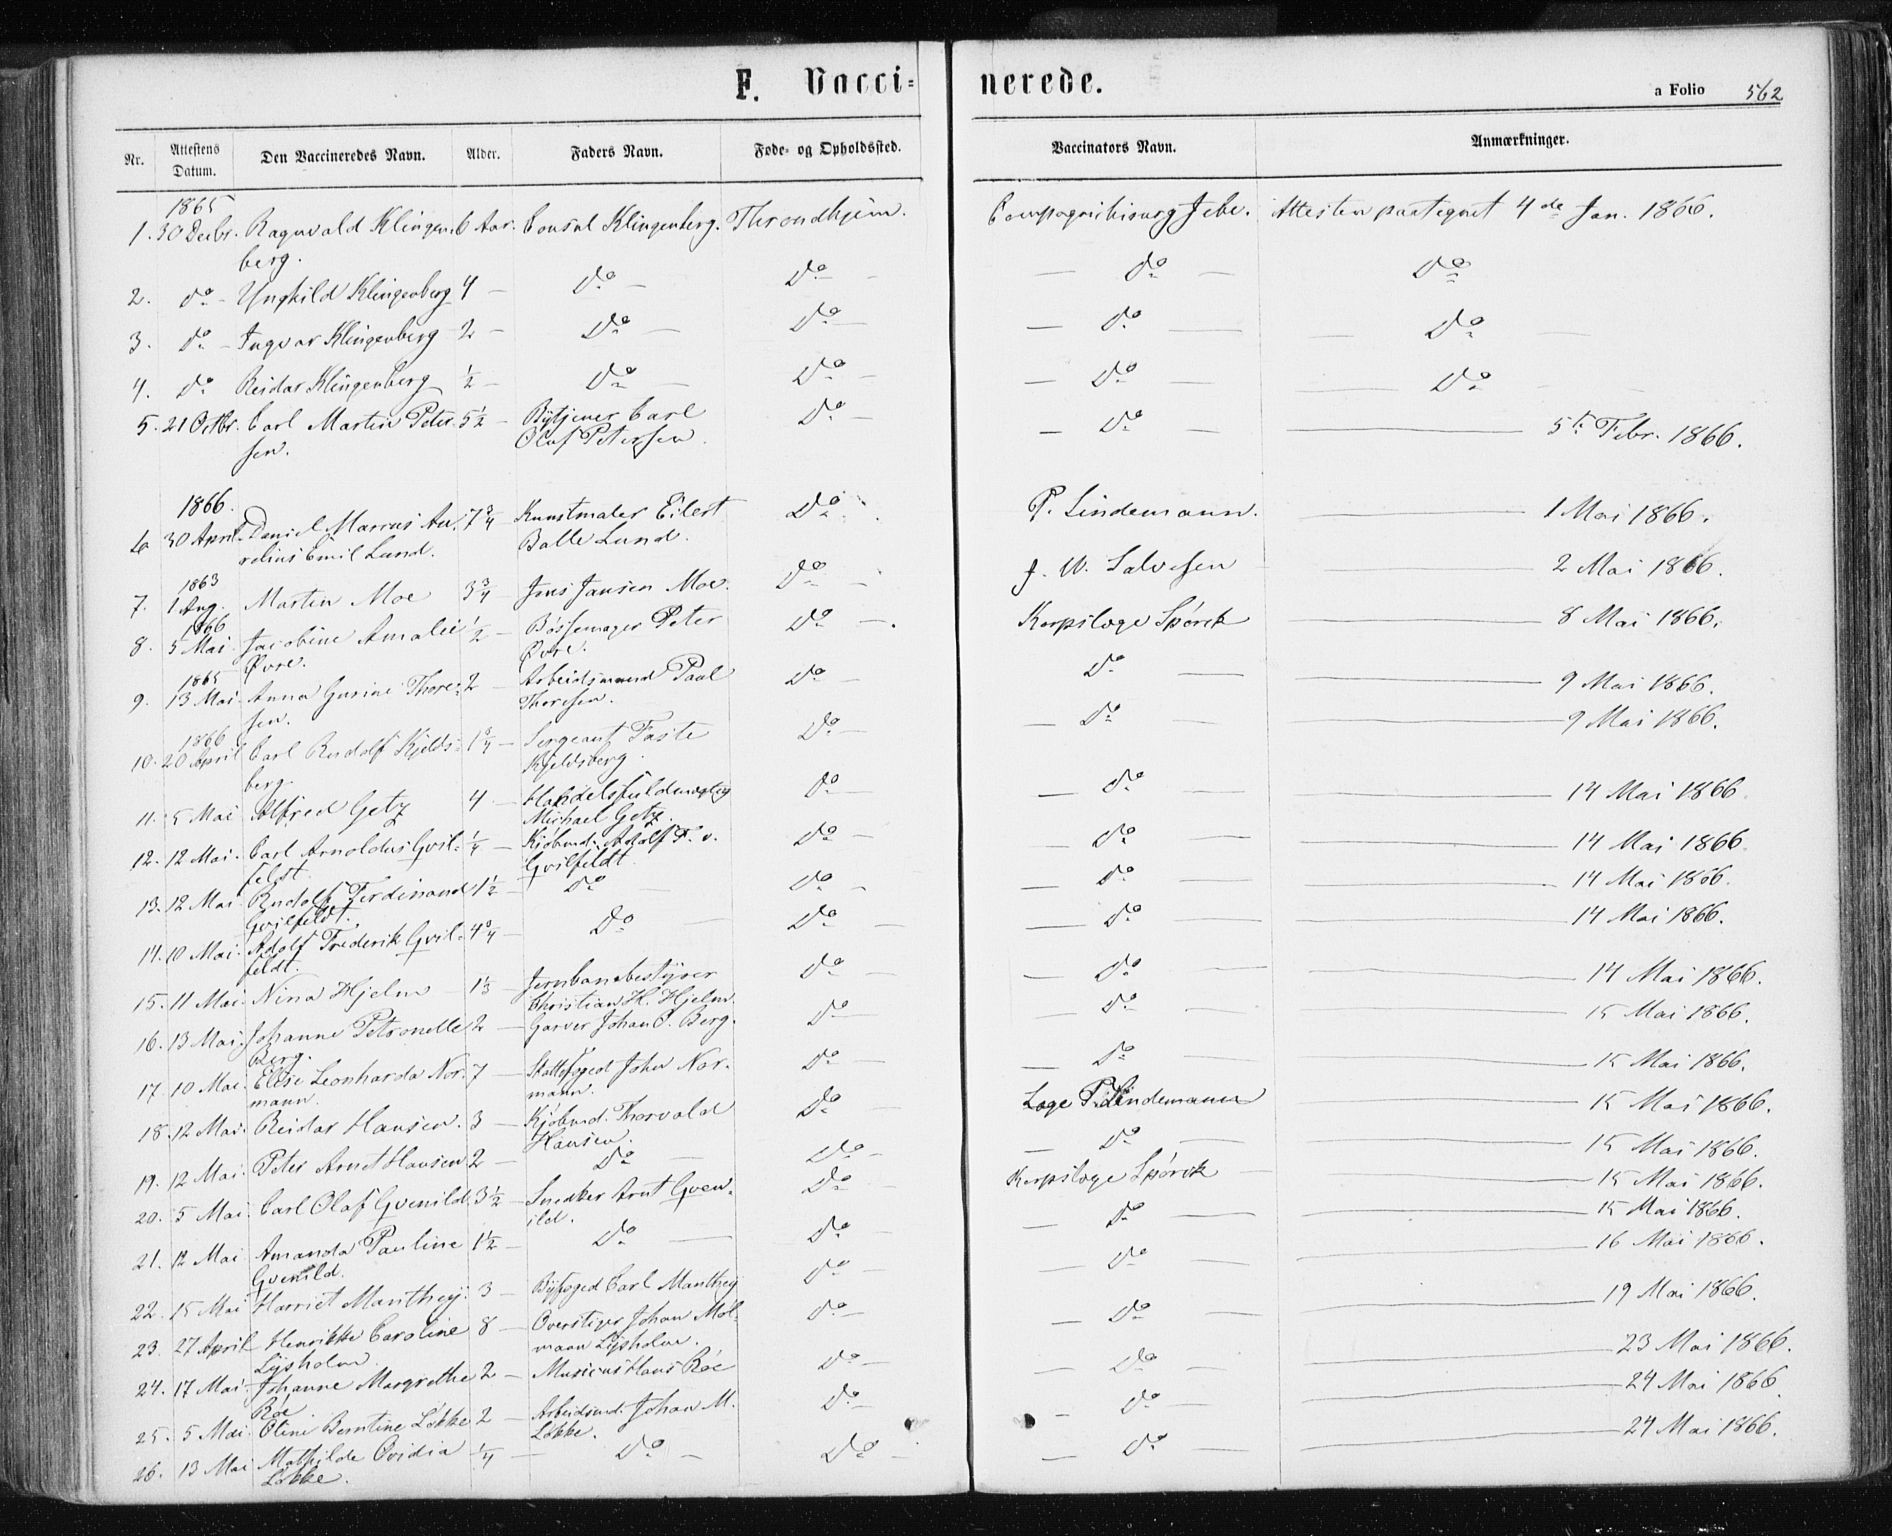 F. Vacci-
nerede.
a Folio 562
Nr. Attestens Datum. Den Vaccineredes Navn. Alder. Faders Navn. Føde- og Opholdssted. Vaccinators Navn. Anmærkninger.
1865
1. 30 Decbr. Ragnvald Klingen- 6 Aar. Consul Klingenberg. Throndhjem. Attesten paategnet 4de Jan. 1866.
berg.
2. do - Yngkild Klingenberg 4 - Do - Do - - Do - Do
3. do - Ingvar Klingenberg 2 - Do - Do - - Do - Do -
4. do Reidar Klingenberg ½ - Do - Do - - Do - Do -
5. 21 Octbr. Carl Martin Peter- 5½ - Bytjener Carl Do - - Do - 5te Febr. 1866.
sen. Olaf Petersen.
1866.
6 30 April Daniel Marcus Au- 7¾ Kunstmaler Eilert Do P. Lindemann. 1 Mai 1866.
relius Emil Lund. Balle Lund.
1863
7. 1 Aug. Martin Moe 3¾ - Jens Jansen Moe. Do - J. W. Salvesen 2 Mai 1866.
1866
8. 5 Mai Jacobine Amalie ½ - Bøssemager Peter Do - Korpslæge Spörck 8 Mai 1866.
Øvre. Øvre.
1865
9. 13 Mai. Anna Gusine Thore- 2 - Arbeidsmand Paul Do - Do - 9 Mai 1866.
sen. Thoresen.
1866
10. 20 April Carl Rudolf Kjelds- 1¾ - Sergeant Faste Do - - Do - 9 Mai 1866.
berg. Kjeldsberg.
11. 5 Mai Alfred Getz 4 - Handelsfuldmægtig do - - Do - 14 Mai 1866
Michael Getz.
12. 12 Mai. Carl Arnoldus Qvil- ¼ - Kjøbmd. Adolf F. v. Do - - Do - 14 Mai 1866
feldt. Qvilfeldt.
13. 12 Mai. Rudolf Ferdinand 1½ - Do - Do - - Do - 14 Mai 1866.
Qvilfeldt.
14. 10 Mai. Adolf Frederik Qvil- 4¾ - Do - Do - - Do - 14 Mai 1866.
feldt.
15. 11 Mai. Nina Hjelm - 1⅓ - Jernbanebestyrer Do - - Do - 14 Mai 1866.
Christian H. Hjelm.
16. 13 Mai. Johanne Petronelle 2 - Garver Johan P. Berg. Do - - Do - 15 Mai 1866.
Berg.
17. 10 Mai. Elise Leonharda Nor- 7 - Slottsfoged Johan Nor- Do - - Do - 15 Mai 1866.
mann. mann.
18. 12 Mai. Reidar Hansen. 3 - Kjøbmd. Thorvald Do - Læge P. Lindemann 15 Mai 1866.
Hansen.
19. 12 Mai. Peter Arnet Hansen 2 - Do - Do - - Do - 15 Mai 1866.
20. 5 Mai Carl Olaf Qvenild. 3½ - Snedker Arnt Qven- Do - Korpslæge Spörck - 15 Mai 1866.
ild.
21. 12 Mai Amanda Pauline 1½ - Do - Do - - Do - 15 Mai 1866.
Qvenild.
22. 15 Mai Harriet Manthey. 3 - Byfoged Carl Manthey Do - - Do - 16 Mai 1866.
23. 27 April Henrikke Caroline 8 - Overstiger Johan Mol- Do - - Do - 19 Mai 1866.
Lysholm. mann Lysholm.
24. 17 Mai. Johanne Margrethe 2 - Musicus Hans Röe Do - - Do - 23 Mai 1866.
Röe
25. 5 Mai. Oline Berntine Løkke 2 - Arbeidsmd. Johan M. Do - - Do - 24 Mai 1866
Løkke.
26. 13 Mai Mathilde Ovidia ¼ - Do - Do - - Do - 24 Mai 1866.
Løkke.